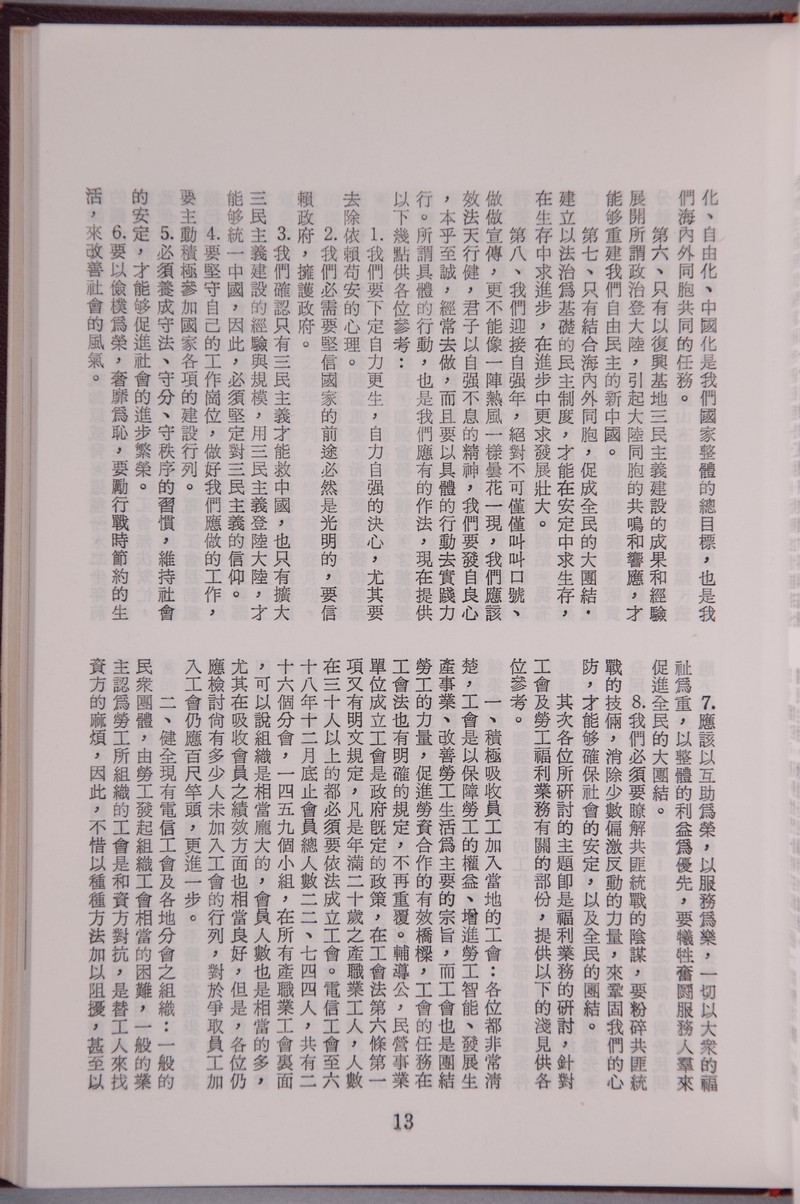 化、自由化、中國化是我們國家整體的總目標，也是我
們海內外同胞共同的任務。
第六、只有以復興基地三民主義建設的成果和經驗
展開所謂政治登大陸，引起大陸同胞的共鳴和響應，才
能够重建我們自由民主的新中國。
第七、只有結合海內外同胞，促成全民的大團結．
建立以法治爲基礎的民主制度，才能在安定中求生存，
在生存中求進步，在進步中更求發展壯大。
第八、我們迎接自强年，絕對不可僅僅叫叫口號、
做做宣傳，更不能像一陣熱風一樣曇花一現，我們應該
效法天行健，君子以自强不息的精神，我們要發自良心
，本乎至誠，經常去做，而且要以具體的行動去實踐力
行。所謂具體的行動，也是我們應有的作法，現在提供
以下幾點供各位參考：
1.我們要下定自力更生，自力自强的決心，尤其要
去除依賴苟安的心理。
2.我們必需要堅信國家的前途必然是光明的，要信
賴政府，擁護政府。
3.我們確認只有三民主義才能救中國，也只有擴大
三民主義建設的經驗與規模，用三民主義登陸大陸，才
能够統一中國，因此，必須堅定對三民主義的信仰。
4.要堅守自己的工作崗位，做好我們應做的工作，
要主動積極參加國家各項的建設行列。
5.必須養成守法、守分、守秩序的習慣，維持社會
的安定，才能够促進社會的進步繁榮。
6.要以儉樸爲榮，奢靡爲恥，要勵行戰時節約的生
活，來改善社會的風氣。
7.應該以互助爲榮，以服務爲樂，一切以大衆的福
祉爲重，以整體的利益爲優先，要犧牲奮鬪服務人羣來
促進全民的大團結。
8.我們必須要瞭解共匪統戰的陰謀，要粉碎共匪統
戰的技倆，消除少數偏激反動的力量，來鞏固我們的心
防，才能够確保社會的安定，以及全民的團結。
其次各位所研討的主題卽是福利業務的研討，針對
工會及勞工福利業務有關的部份，提供以下的淺見供各
位參考。
一、積極吸收員工加入當地的工會：各位都非常清
楚，工會是以保障勞工的權益、增進勞工智能、發展生
產事業、改善勞工生活爲主要的宗旨，而工會也是團結
勞工的力量，促進勞資合作的有效橋樑，工會的任務在
工會法也有明確的規定，不再重覆。輔導公，民營事業
單位成立工會是政府旣定的政策，在工會法第六條第一
項又有明文規定，凡是年滿二十歲之產職業工人，人數
在三十人以上的都必須要依法成立工會。電信工會至六
十八年十二月底止會員總人數二二、七四四人，共有二
十六個分會，一四五九個小組，在所有產職業工會裏面
，可以說組織是相當龐大的，會員人數也是相當的多，
尤其在吸收會員之績效方面也相當良好，但是，各位仍
應檢討尙有多少人未加入工會的行列，對於爭取員工加
入工會仍應百尺竿頭，更進一步。
二、健全現有電信工會及各地分會之組織：一般的
民衆團體，由勞工發起組織工會相當的困難，一般的業
主認爲勞工所組織的工會是和資方對抗，是替工人來找
資方的麻煩，因此，不惜以種種方法加以阻擾，甚至以
13